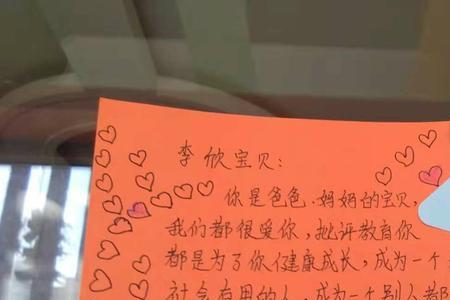 李欣宝贝:
你是爸爸、妈妈的宝贝,
我们都很爱你,批评教育你
都是为了你健康成长,成为一个
社会有用的人,成为一个别人都